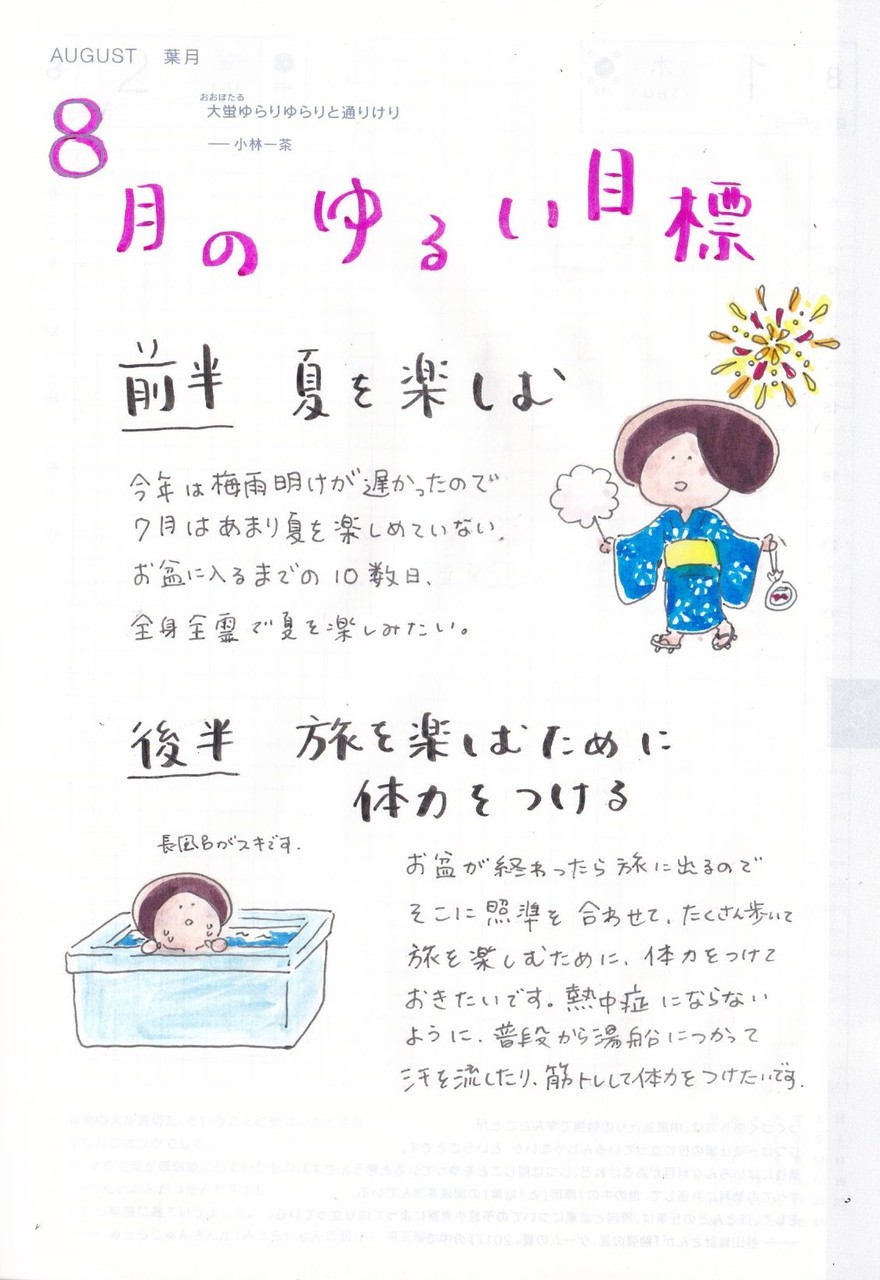 AUGUST 葉月
おおほたる
大蛍ゆらりゆらりと通りけり
── 小林一茶
8月のゆるい目標
前半 夏を楽しむ
今年は梅雨明けが遅かったので
7月はあまり夏を楽しめていない。
お盆に入るまでの10数日、
全身全霊で夏を楽しみたい。
後半 旅を楽しむために
体力をつける
長風呂がスキです.
お盆が終わったら旅に出るので
そこに照準を合わせて、たくさん歩いて
旅を楽しむために、体力をつけて
おきたいです。熱中症にならない
ように、普段から湯船につかって
汗を流したり、筋トレして体力をつけたいです.